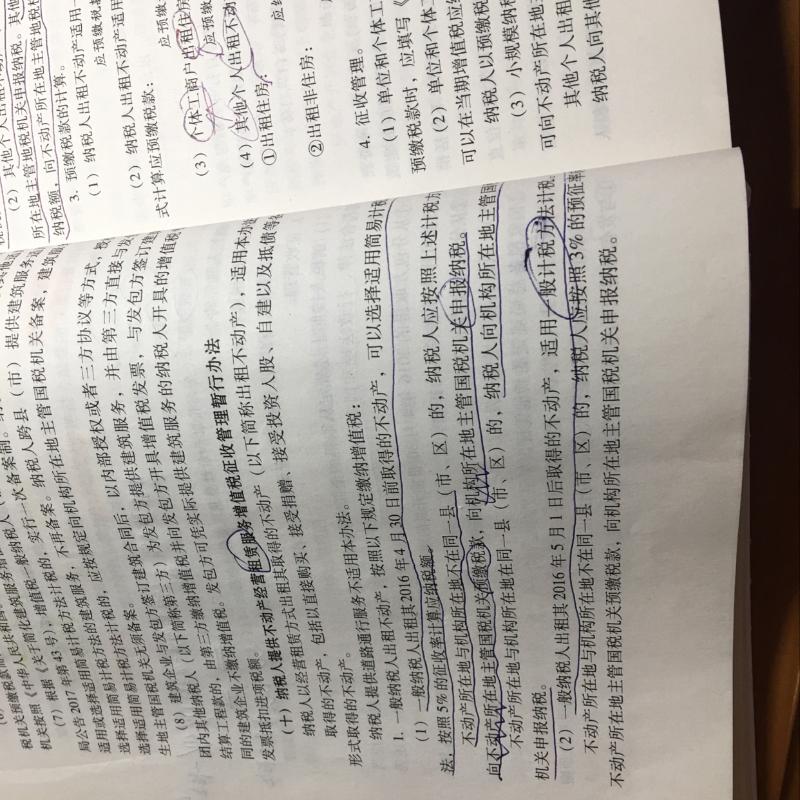 税机关预缴税款
机关按照《中华人民共和国
(7) 根据《关于简化建筑服务增值
局公告2017年第43号),增值税一般纳税人(
适用或选择适用简易计税方法计税的,实行一次备案制。
选择适用简易计税方法的建筑服务,不再备案。纳税人跨县(市)提供建筑服务
选择适用简易计税方法计税的,应按规定向机构所在地主管国税机关备案,建筑
生地主管国税机关无须备案。
(8) 建筑企业与发包方签订建筑合同后,以内部授权或者三方协议等方式,
团内其他纳税人(以下简称第三方)为发包方提供建筑服务,并由第三方直接与发
结算工程款的,由第三方缴纳增值税并向发包方开具增值税发票,与发包方签订建
同的建筑企业不缴纳增值税。发包方可凭实际提供建筑服务的纳税人开具的增值税
发票抵扣进项税额。
(十) 纳税人提供不动产经营租赁服务增值税征收管理暂行办法
纳税人以经营租赁方式出租其取得的不动产(以下简称出租不动产),适用本办法
取得的不动产,包括以直接购买、接受捐赠、接受投资入股、自建以及抵债等
形式取得的不动产。
纳税人提供道路通行服务不适用本办法。
1. 一般纳税人出租不动产,按照以下规定缴纳增值税:
(1) 一般纳税人出租其2016年4月30日前取得的不动产,可以选择适用简易计税
法,按照5%的征收率计算应纳税额。
不动产所在地与机构所在地不在同一县(市、区)的,纳税人应按照上述计税
向不动产所在地主管国税机关预缴税款,向机构所在地主管国税机关申报纳税。
不动产所在地与机构所在地在同一县(市、区)的,纳税人向机构所在地主管国
机关申报纳税。
(2) 一般纳税人出租其2016年5月1日后取得的不动产,适用一般计税方法计税
不动产所在地与机构所在地不在同一县(市、区)的,纳税人应按照3%的预征率
不动产所在地主管国税机关预缴税款,向机构所在地主管国税机关申报纳税。
(2) 其他个人出租不动产
所在地主管地税机关申报纳税。其他
纳税额,向不动产所在地主管地税机
3. 预缴税款的计算。
(1) 纳税人出租不动产适用一
应预缴税
(2) 纳税人出租不动产适用
式计算应预缴税款:
应预缴
(3) 个体工商户出租住房
应预缴税
(4) 其他个人出租不动
①出租住房:
应
②出租非住房:
4. 征收管理。
(1) 单位和个体工
预缴税款时,应填写《
(2) 单位和个体工
可以在当期增值税应纳
纳税人以预缴税
(3) 小规模纳税
可向不动产所在地主
其他个人出租
纳税人向其他